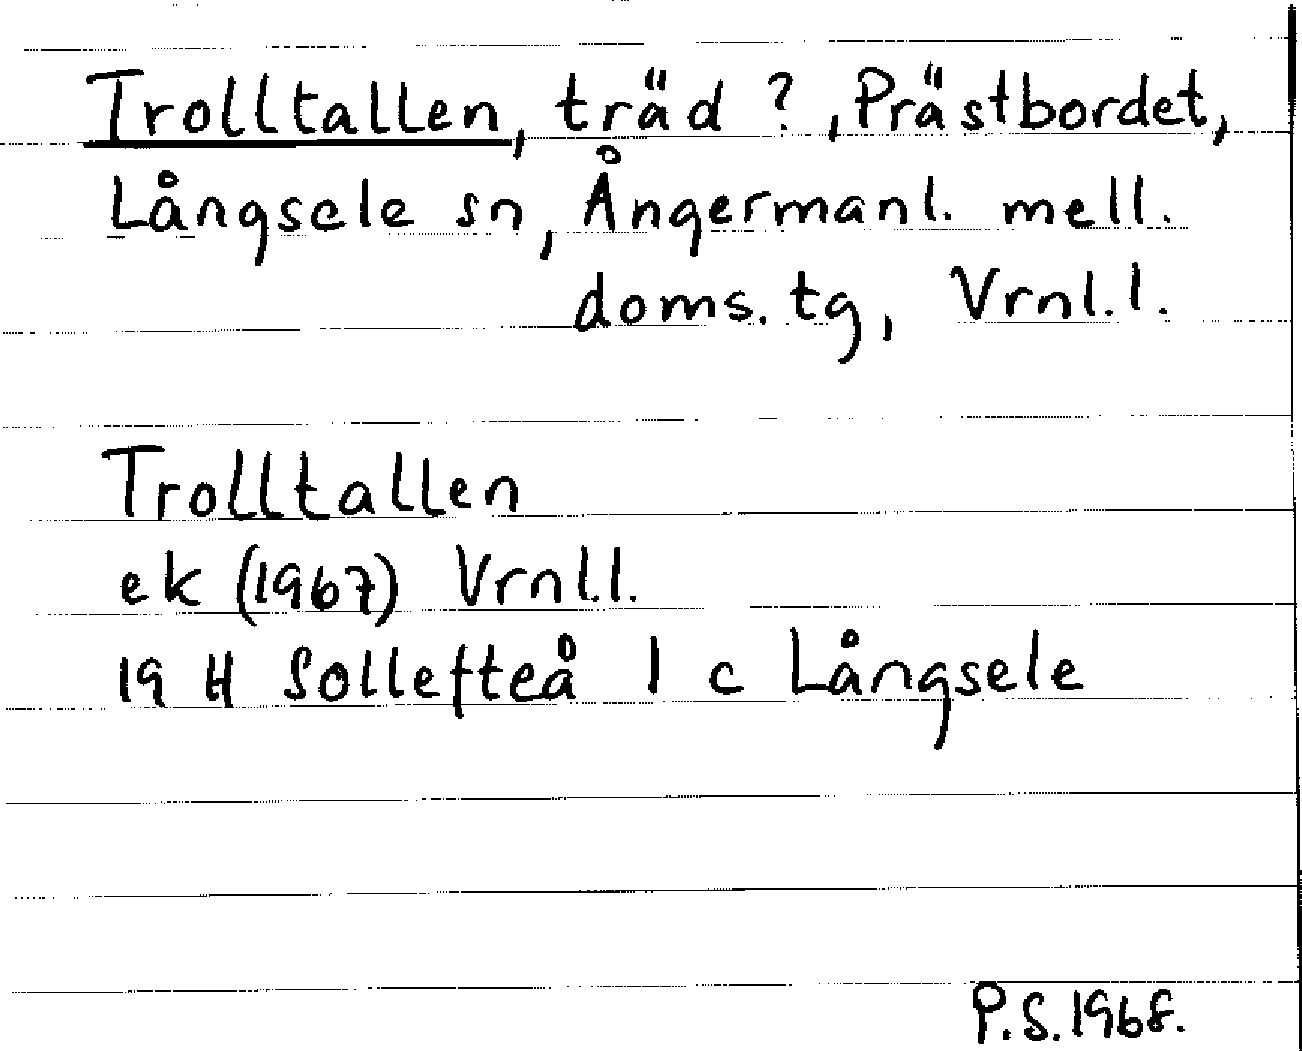 Trolltallen, träd ?, Prästbordet,
Långsele sn, Ångermanl. mell.
doms. tg, Vrnl. l.
Trolltallen
ek (1967) Vrnl.l.
19 H Sollefteå 1 c Långsele
P.S. 1968.